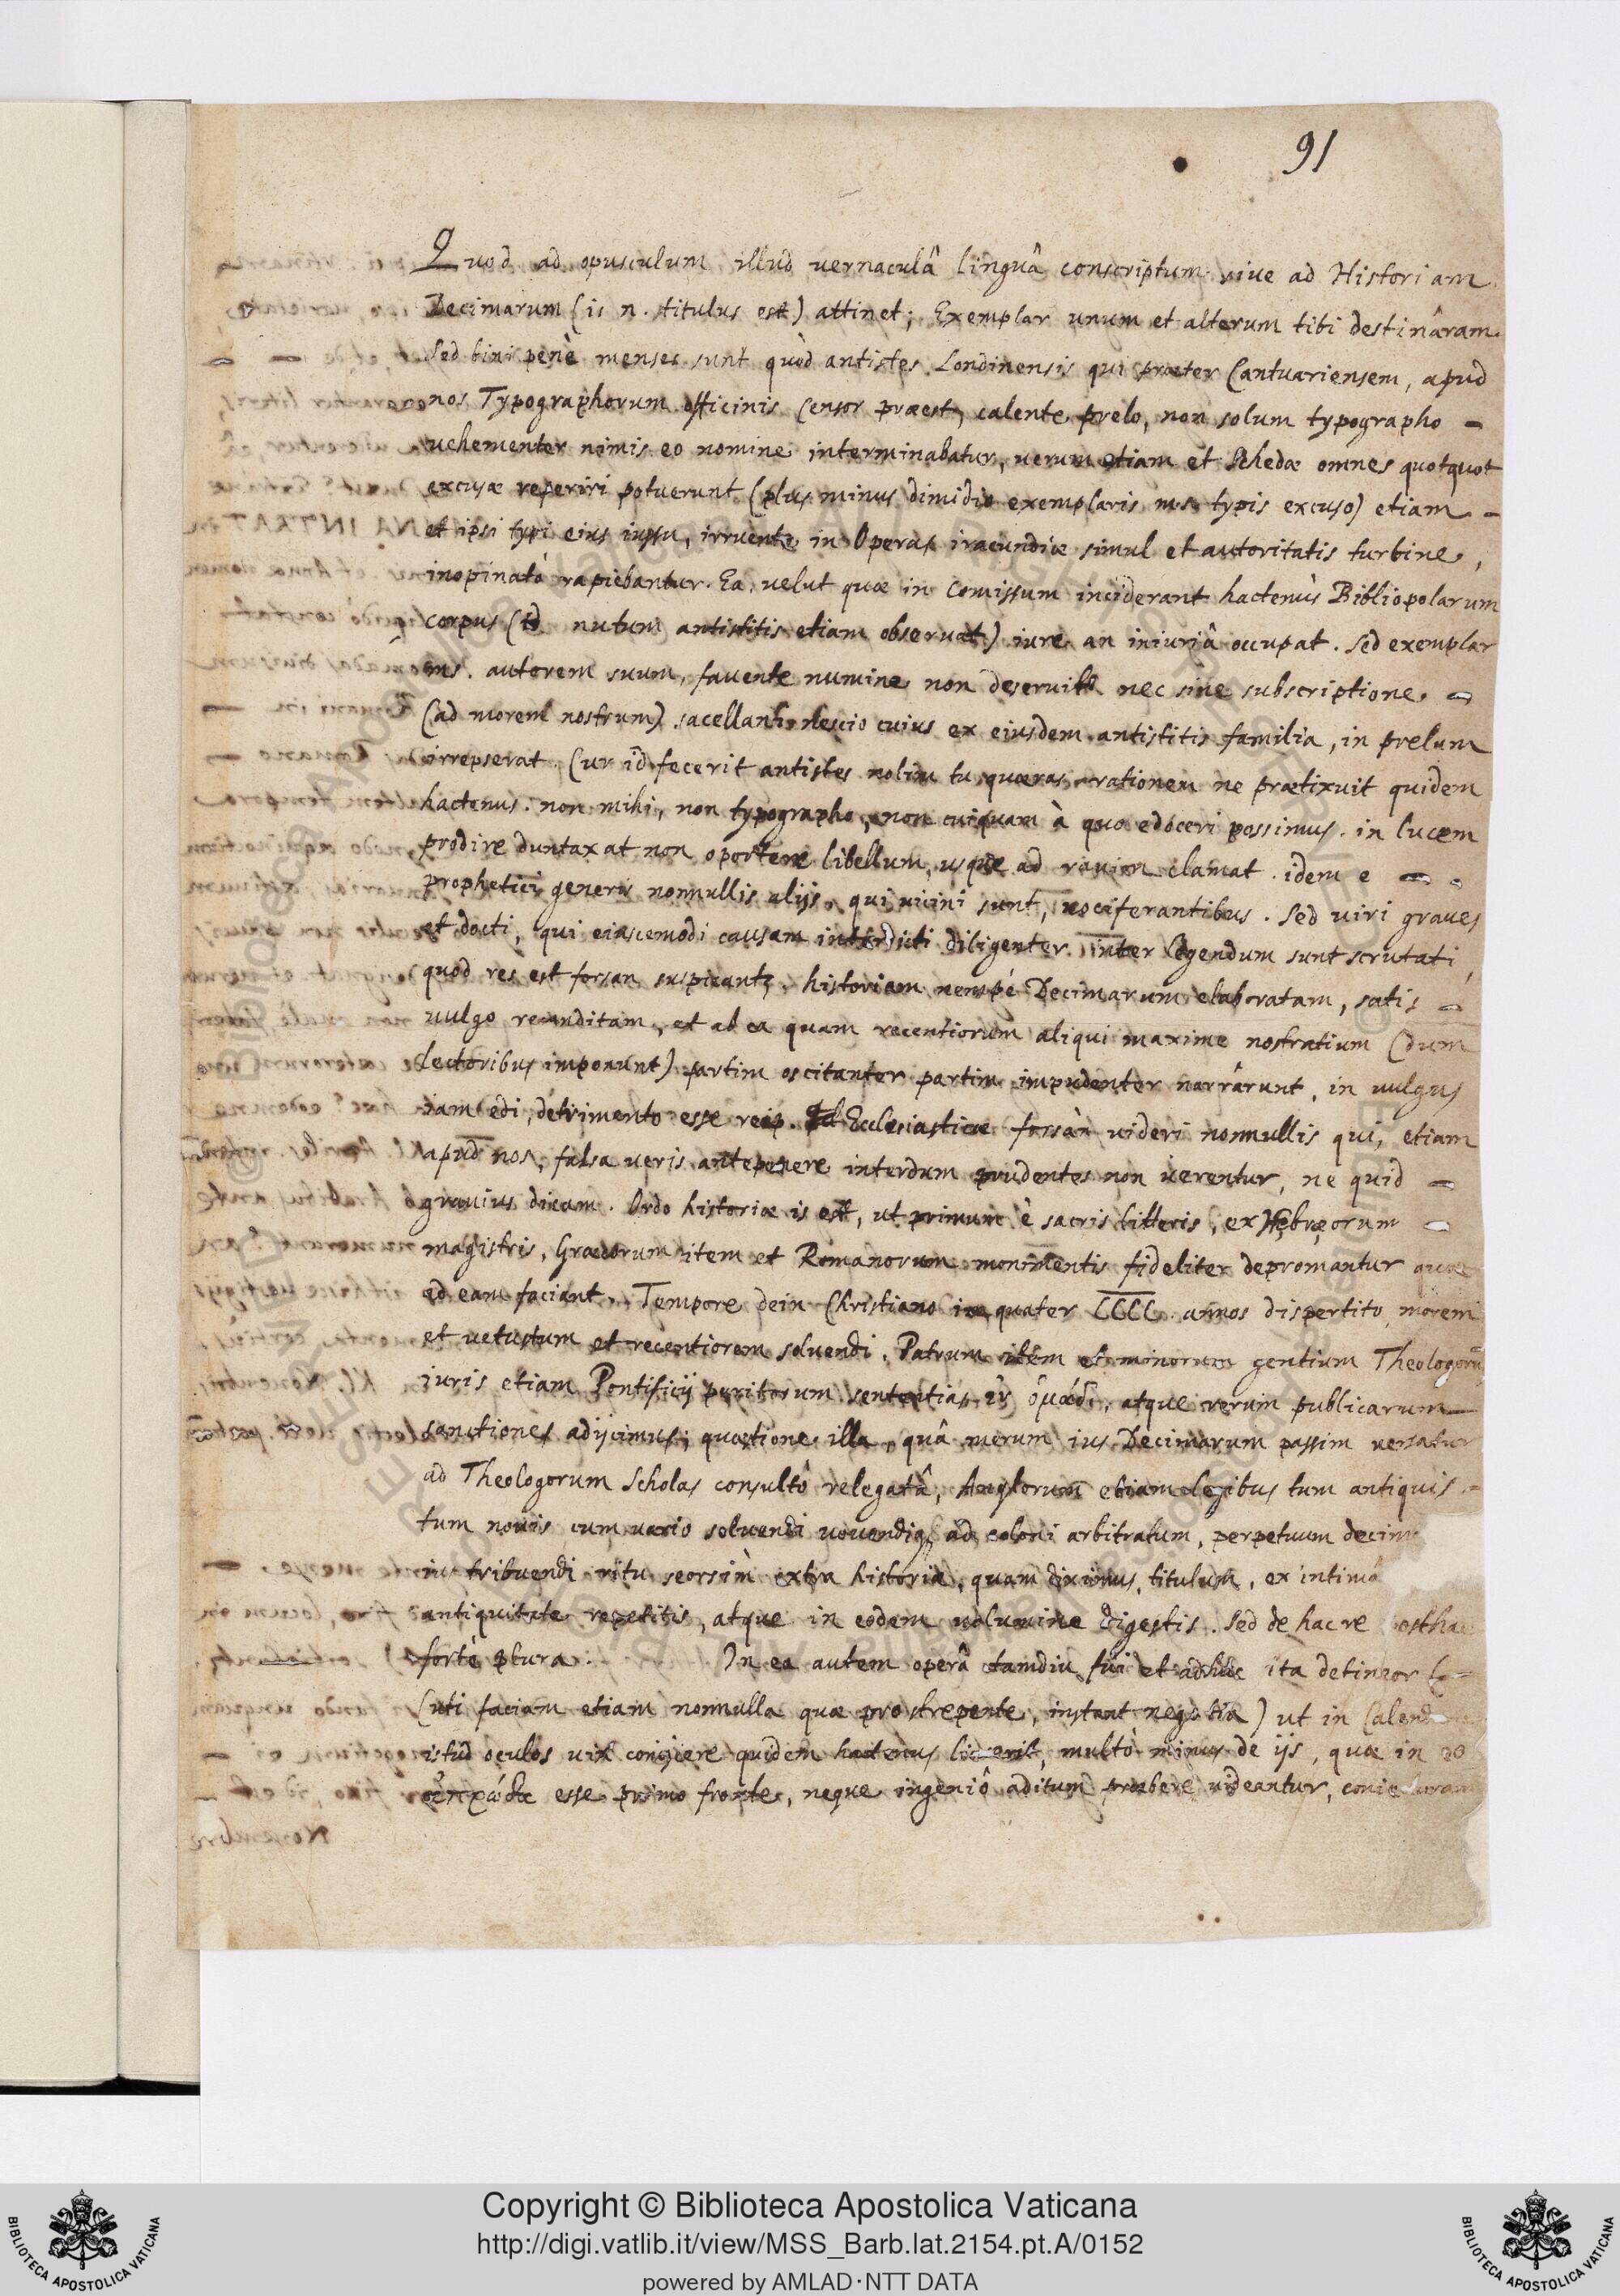 91
Quod ad opusculum illud vernaculâ linguâ conscriptum sive ad Historiam
Decimarum (is n. titulus est) attinet; Exemplar unum et alterum tibi destinâram.
Sed bini penè menses sunt quòd antistes Londinensis qui præter Cantuariensem, apud
nos Typographorum officinis Censor præest, calente prelo, non solum typographo -
uehementer nimis eo nomine interminabatur, uerum etiam et Schedæ omnes quotquot
excusæ reperiri potuerunt (plus minus dimidio exemplaris ms. typis excuso) etiam -
et ipsi typi eius iussu, irruente in Operas iracundiæ simul et autoritatis turbine,
inopinatò rapiebantur. Ea, velut quæ in Comissum inciderant hactenùs Bibliopolarum
corpus (id nutum antistitis etiam obseruat) iure an iniuriâ occupat. Sed exemplar
ms. autorem suum, fauente numine non deseruit nec sine subscriptione -
(ad morem nostrum) sacellani nescio cuius ex eiusdem antistitis familia, in prelum
irrepserat. Cur id fecerit antistes nolim tu quæras rationem ne prætixuit quidem
hactenus. non mihi, non typographo, non cuiquam à quo edoceri possimus. in lucem
prodire duntaxat non oportere libellum, usque ad rauim clamat. idem e -
prophetici generis nonnullis alijs, qui uicini sunt, uociferantibus. Sed viri graues
et docti, qui eiuscemodi causam interdicti diligenter inter legendum sunt scrutati,
quod res est forsan suspicantr, historiam nempè Decimarum elaboratam, satis -
uulgo reconditam, et ab ea quam recentiorum aliqui maxime nostratium (dum
lectoribus imponunt) partim oscitanter partim impudenter narrârunt, in uulgus
iam edi, detrimento esse reip. Ecclesiasticæ forsàn uideri nonnullis qui, etiam
apud nos, falsa ueris anteponere interdum prudentes non uerentur, ne quid -
grauius dicam. Ordo historiæ is est, ut primum è sacris litteris, ex Hebræorum -
magistris, Græcorum item et Romanorum monimentis fideliter depromantur quæ
ad eam faciant. Tempore dein Christiano in quater CCCC annos dispertito, morem
et uetustum et recentiorem soluendi, Patrum item et minorum gentium Theologorũ
iuris etiam Pontificij peritorum sententias, atque rerum publicarum
sanctiones adijcimus; quæstione illa, quâ merum ius Decimarum passim uersatur
ad Theologorum Scholas consultò relegatâ, Anglorum etiam legibus tum antiquis -
tum nouis cum uario soluendi uouendiq, ad coloni arbitratum, perpetuum decim
ius tribuendi ritu seorsim extra historiæ, quam diximus, titulum, ex intimâ
antiquitate repetitis, atque in eodem uolumine digestis. Sed de hac re ostha
fortè plura. In ea autem operâ tamdiu fui et adhuc ita detineor
(uti faciam etiam nonnulla quæ prostrepente, instant negotia) ut in Calend
istud oculos uix conijcere quidem hactenus licuerit, multò minus de ijs, quæ in eo
esse primo fronte, neque ingeniô aditum præbere uideantur, conie uram
Nouembre
Copyright © Biblioteca Apostolica Vaticana
http://digi.vatlib.it/view/MSS_Barb.lat.2154.pt.A/0152
powered by AMLAD·NTT DATA
BIBLIOTECA APOSTOLICA VATICANA
BIBLIOTECA APOSTOLICA VATICANA